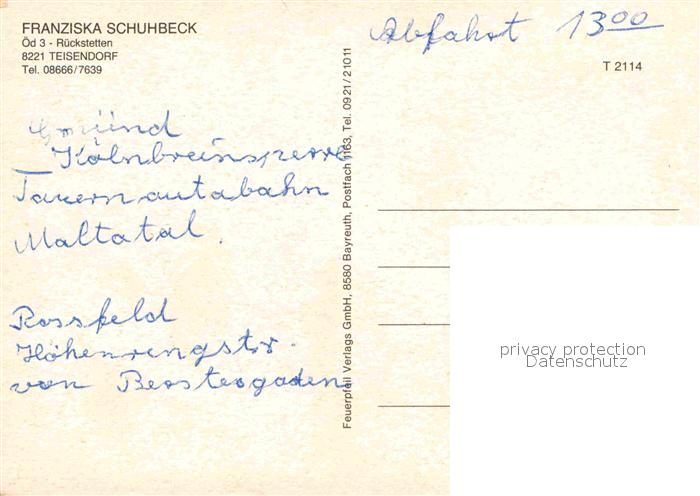 FRANZISKA SCHUHBECK
Öd 3 - Rückstetten
8221 TEISENDORF
Tel. 08666/7639
Abfahrt 13⁰⁰
T 2114
Gmünd
Kölnbreinsperre
Tauernautabahn
Maltatal.
Rossfeld
Höhenringstr.
von Berstesgaden
Feuerpfeil Verlags GmbH, 8580 Bayreuth, Postfach 1163, Tel. 0921/21011
privacy protection
Datenschutz